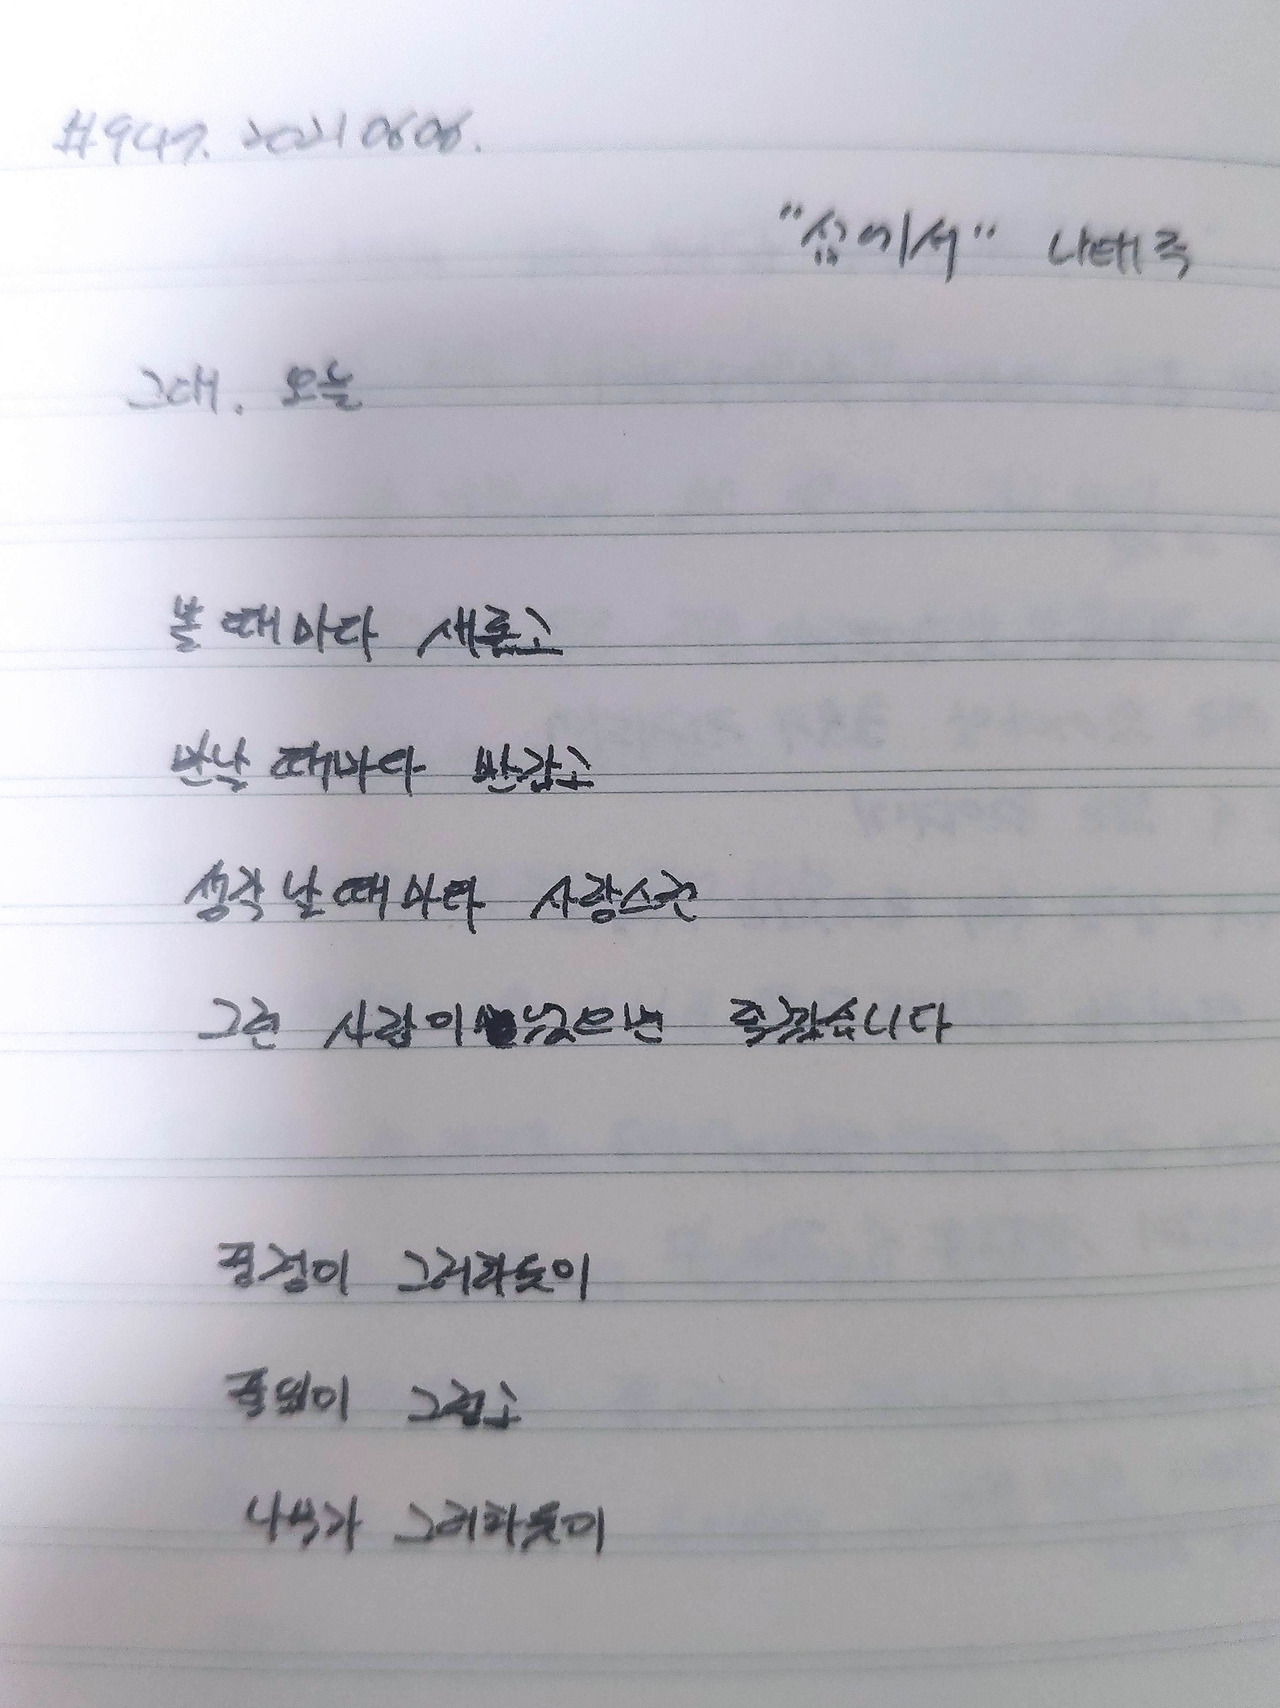 #947. 20210606.
"섬에서" 나태주
그대, 오늘
볼 때마다 새롭고
만날 때마다 반갑고
생각날 때마다 사랑스런
그런 사람이었으면 좋겠습니다
풍경이 그러하듯이
풀잎이 그렇고
나무가 그러하듯이